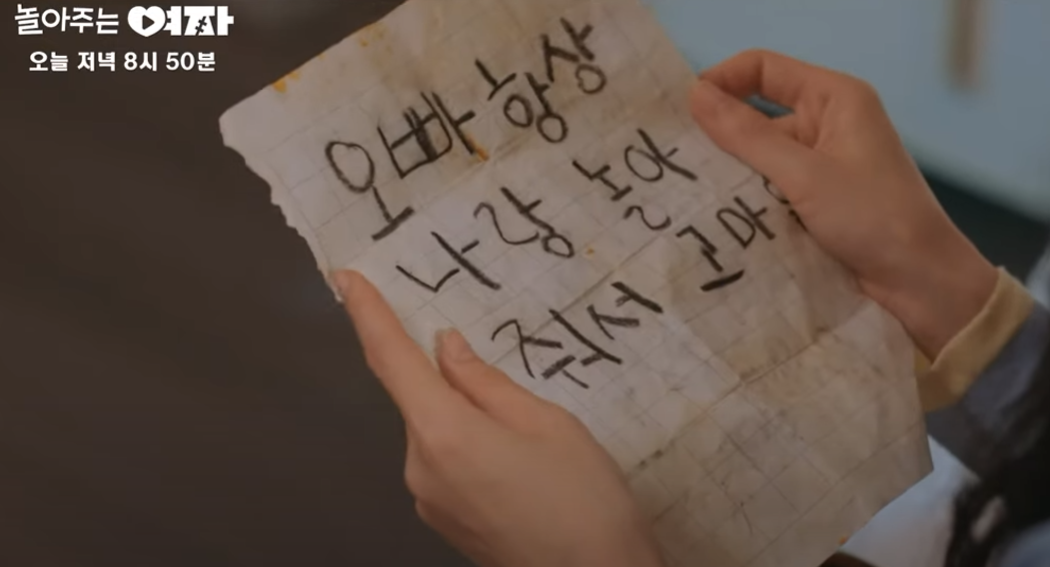 놀아주는 여자
오늘 저녁 8시 50분
오빠 항상
나랑 놀아
줘서 고마